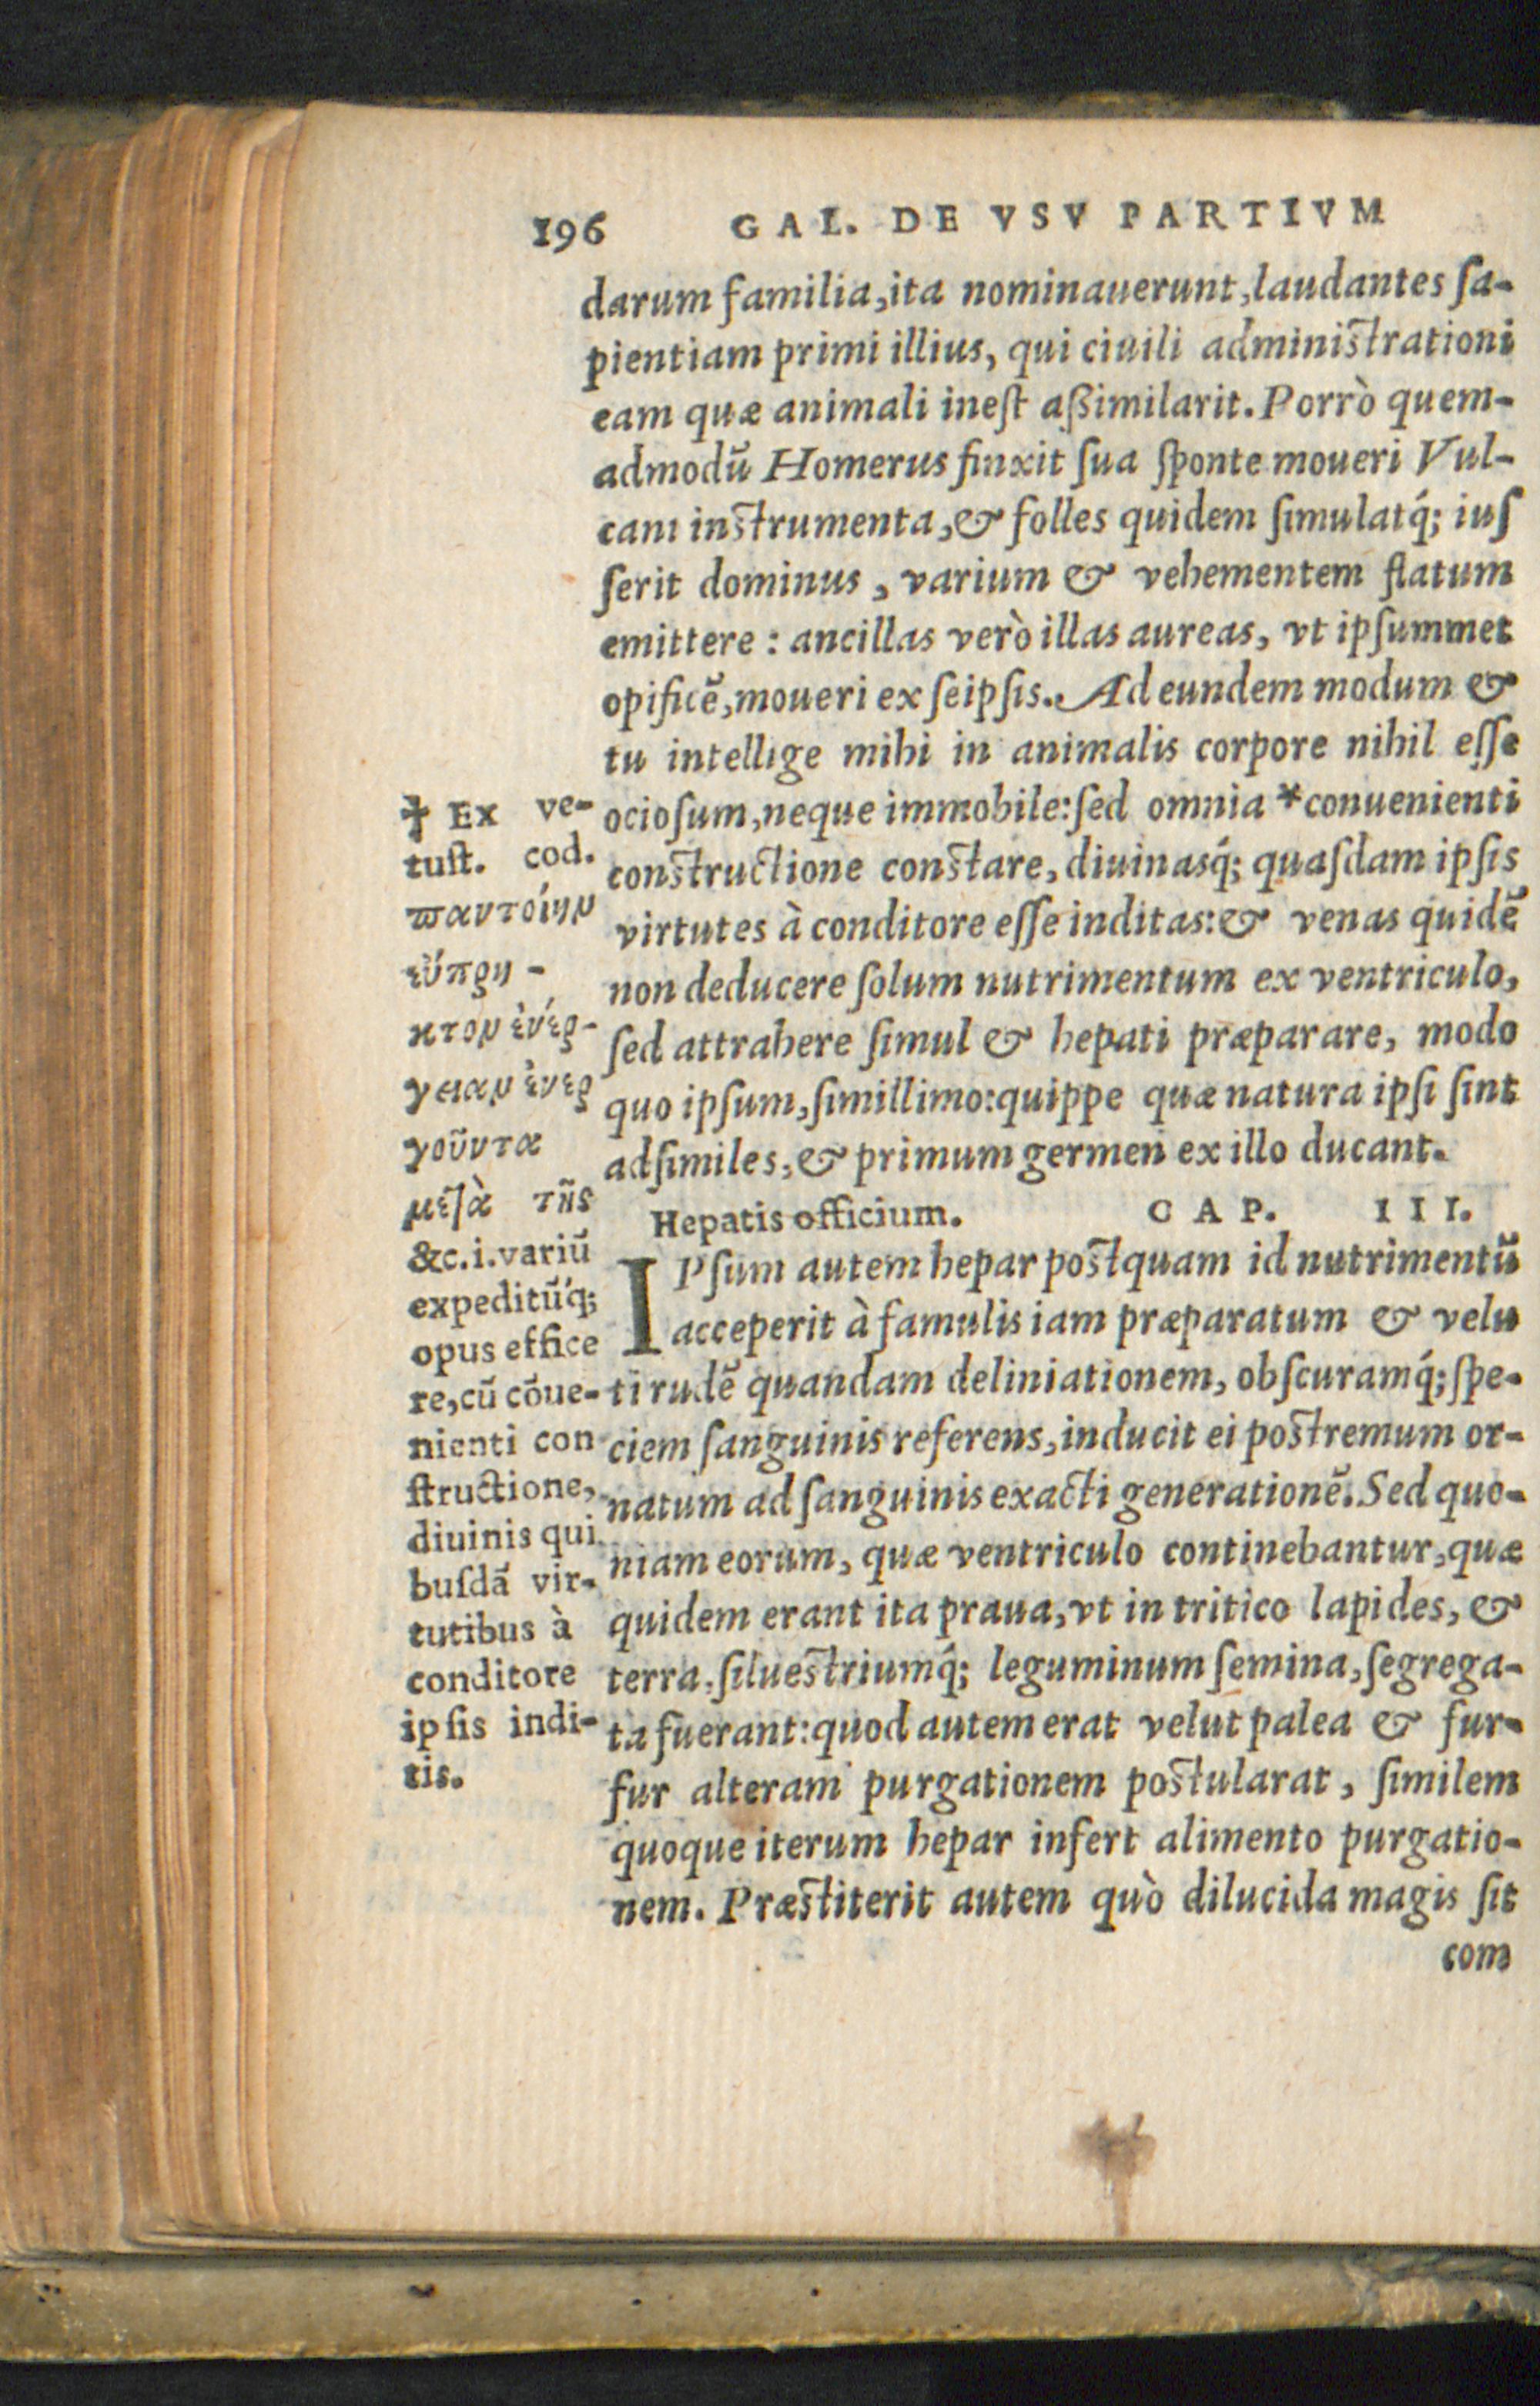 196 GAL. DE VSV PARTIVM
darum familia,ita nominauerunt,laudantes ſa-
pientiam primi illius, qui ciuili adminiſtrationi
eam quæ animali ineſt aßimilarit. Porrò quem-
admodũ Homerus finxit ſua ſponte moueri Vul-
cani inſtrumenta,& folles quidem ſimulatq́; iuſ
ſerit dominus, varium & vehementem flatum
emittere: ancillas verò illas aureas, vt ipſummet
opificẽ,moueri ex ſeipſis. Ad eundem modum &
tu intellige mihi in animalis corpore nihil eſſe
ocioſum,neque immobile:ſed omnia *conuenienti
conſtructione conſtare, diuinasq́; quaſdam ipſis
virtutes à conditore eſſe inditas:& venas quidẽ
non deducere ſolum nutrimentum ex ventriculo,
ſed attrahere ſimul & hepati præparare, modo
quo ipſum,ſimillimo:quippe quæ natura ipſi ſint
adſimiles,& primum germen ex illo ducant.
† Ex ve-
tuſt. cod.
παντοίην
εὔπρη-
κτον ἐνέρ-
γειαν ἐνερ
γοῦντα
μετὰ τῆς
&c.i.variũ
expeditũq́;
opus effice
re,cũ cõue-
nienti con
ſtructione,
diuinis qui
buſdã vir-
tutibus à
conditore
ipſis indi-
tis.
Hepatis officium. CAP. III.
IPſum autem hepar poſtquam id nutrimentũ
acceperit à famulis iam præparatum & velu
ti rudẽ quandam deliniationem, obſcuramq́; ſpe-
ciem ſanguinis referens,inducit ei poſtremum or-
natum ad ſanguinis exacti generationẽ. Sed quo-
niam eorum, quæ ventriculo continebantur,quæ
quidem erant ita praua,vt in tritico lapides, &
terra,ſilueſtriumq́; leguminum ſemina,ſegrega-
ta fuerant:quod autem erat velut palea & fur-
fur alteram purgationem poſtularat, ſimilem
quoque iterum hepar infert alimento purgatio-
nem. Præſtiterit autem quò dilucida magis ſit
com